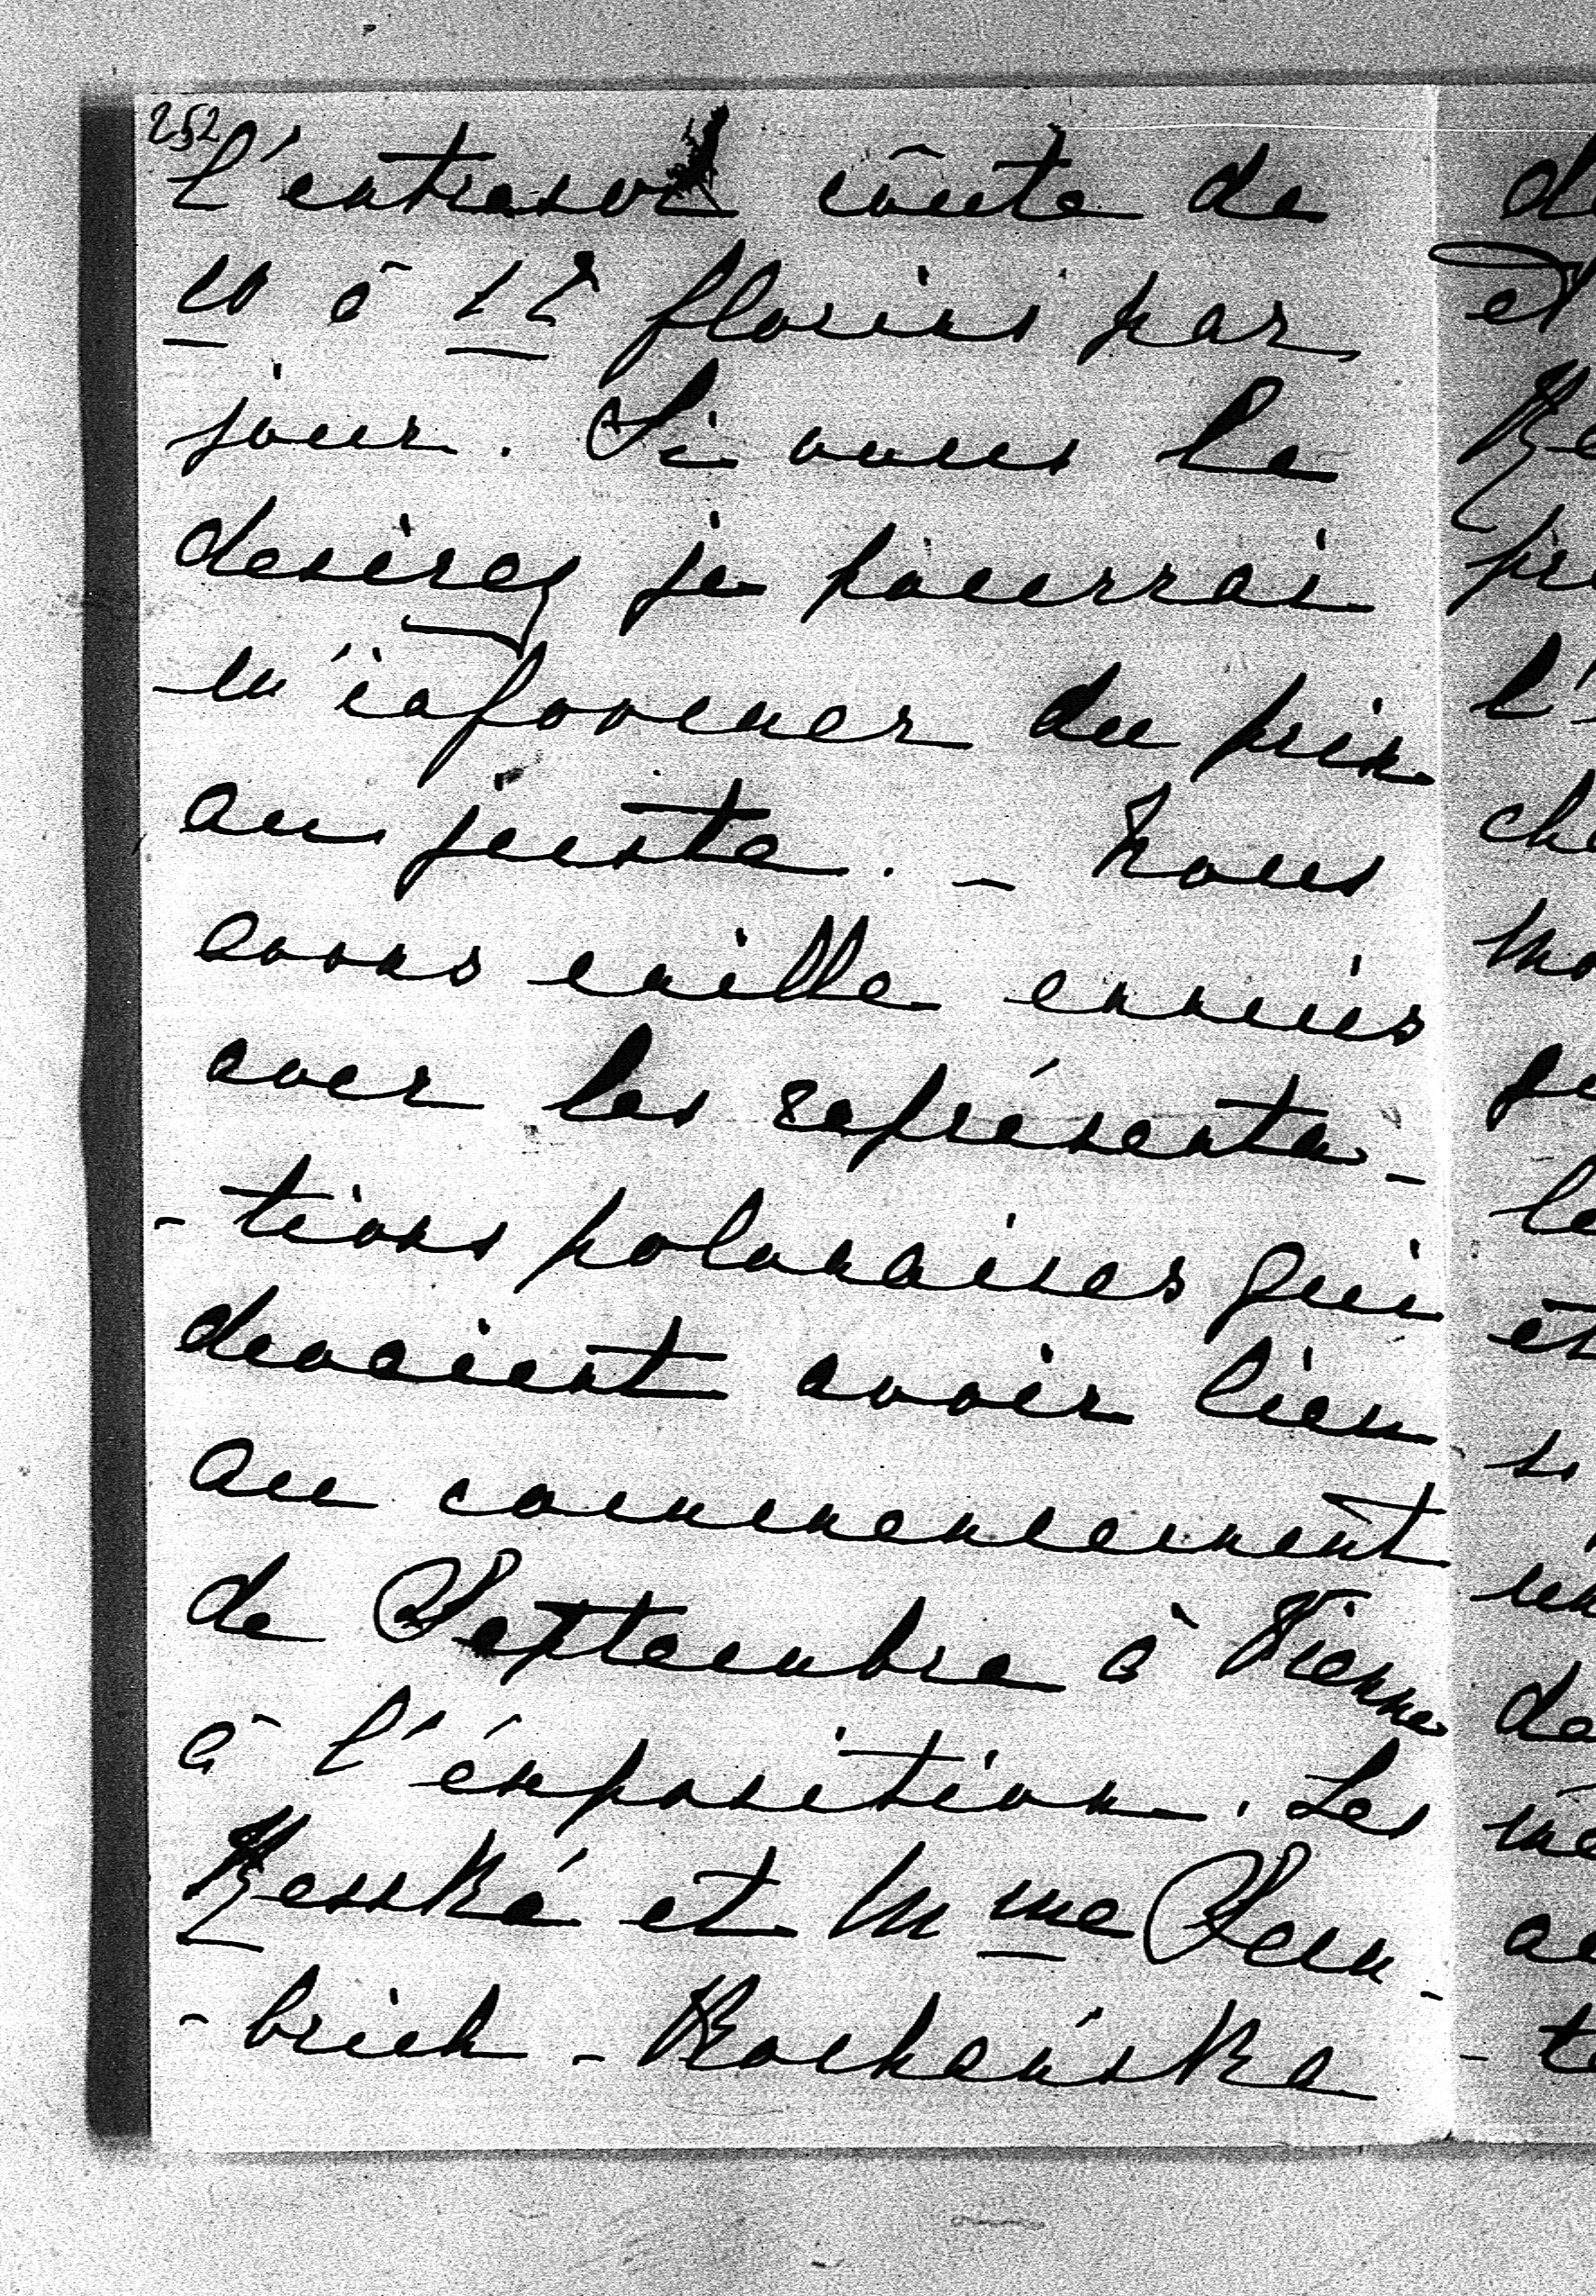 252
l'entresol coûte de
10 à 12 florins par
jour. Si vous le
desirez je pourrai
m'informer du prix
au juste. - Nous
avons mille ennuis
avec les représenta-
-tions polonaises qui
devaient avoir lieu
au commencement
de Septembre à Vienne
à l'éxposition. Les
Reszké et Mme Sem-
-brich - Kochańska